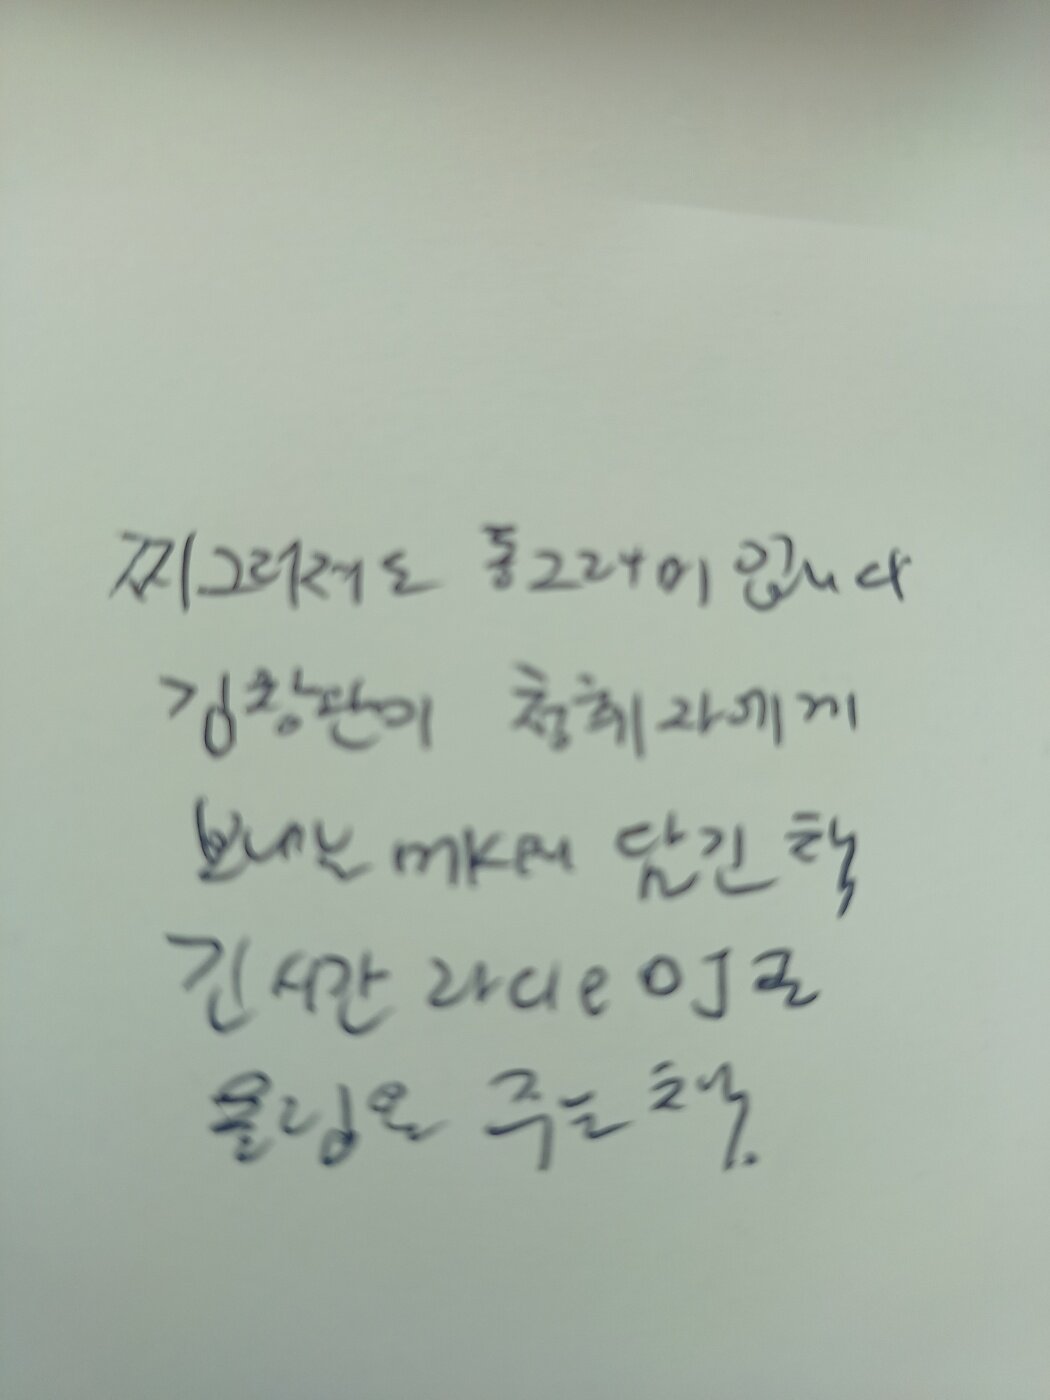 찌그러져도 동그라미입니다
김창완이 청취자에게
보내는 담긴 책
긴 시간 라디오 DJ로
울림을 주는 책.